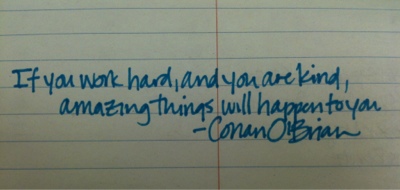 If you work hard, and you are kind,
amazing things will happen to you
-Conan O'Brian